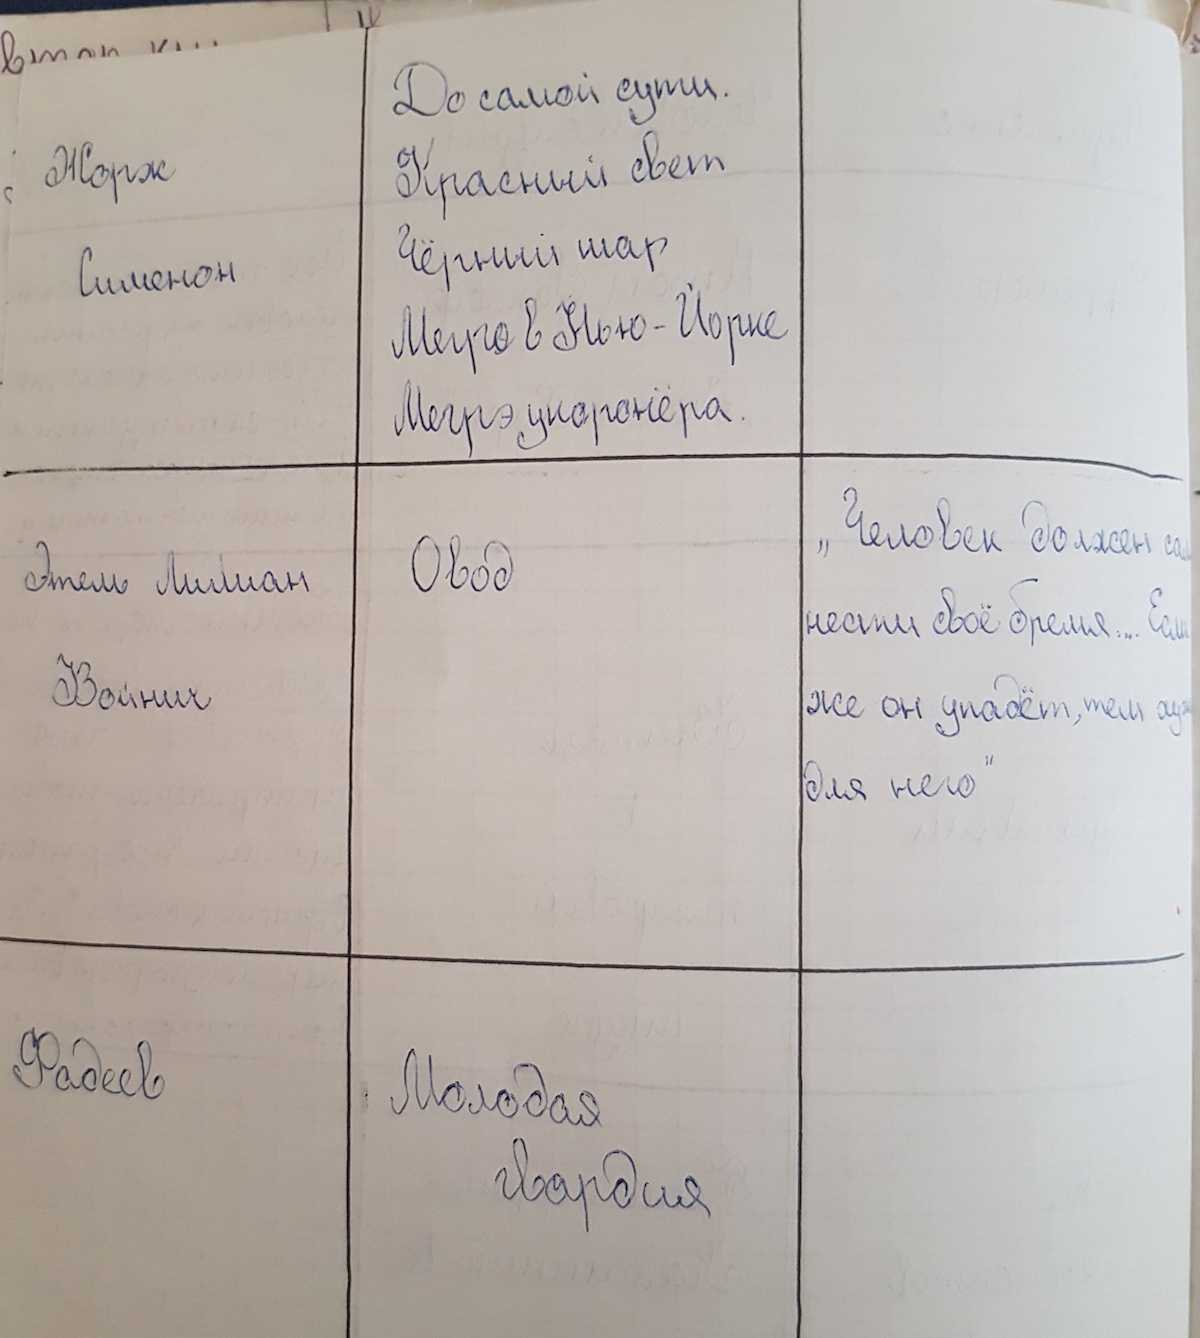 Жорж
Сименон
До самой сути.
Красный свет
Чёрный шар
Мегрэ в Нью-Йорке
Мегрэ у коронёра.
Этель Лилиан
Войнич
Овод
„Человек должен
нести своё бремя... Если
же он упадёт, тем
для него"
Фадеев
Молодая
гвардия